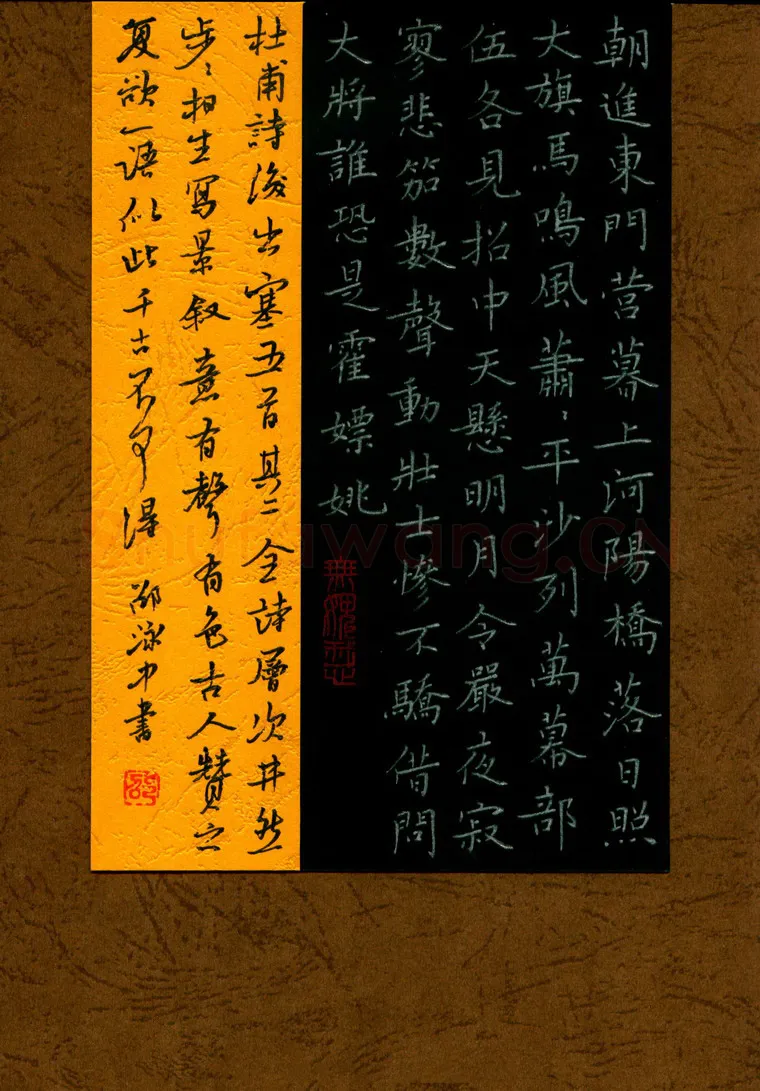 朝進東門营暮上河陽橋落日照
大旗馬鳴風蕭〻平沙列萬幕部
伍各見招中天懸明月令嚴夜寂
寥悲笳數聲動壯士慘不驕借問
大將誰恐是霍嫖姚
杜甫詩後出塞五首其二全詩層次井然
步〻相生寫景叙意有聲有色古人贊之
复欲一語似此千古不可得 邵泳中書
shufawang.CN